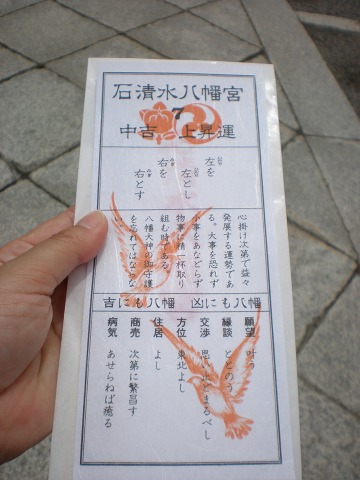 石清水八幡宮
7
中吉 上昇運
左を
左とし
右を
右とす
心掛け次第で益々
発展する運勢であ
る。大事を恐れず
小事をあなどらず
物事に精一杯取り
組む時である。
八幡大神の御守護
を忘れてはならな
い。
吉にも八幡 凶にも八幡
願望 叶う
縁談 ととのう
交渉 思い止とまるべし
方位 東北よし
住居 よし
商売 次第に繁昌す
病気 あせらねば癒る